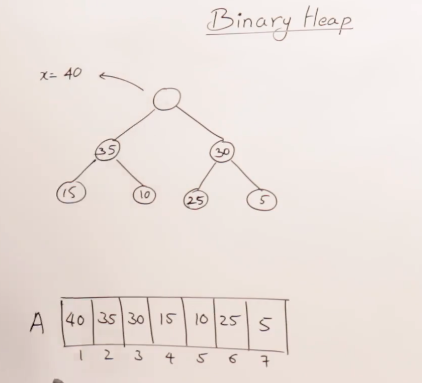 Binary Heap
x= 40
35 30
15 10 25 5
A 40 35 30 15 10 25 5
1 2 3 4 5 6 7